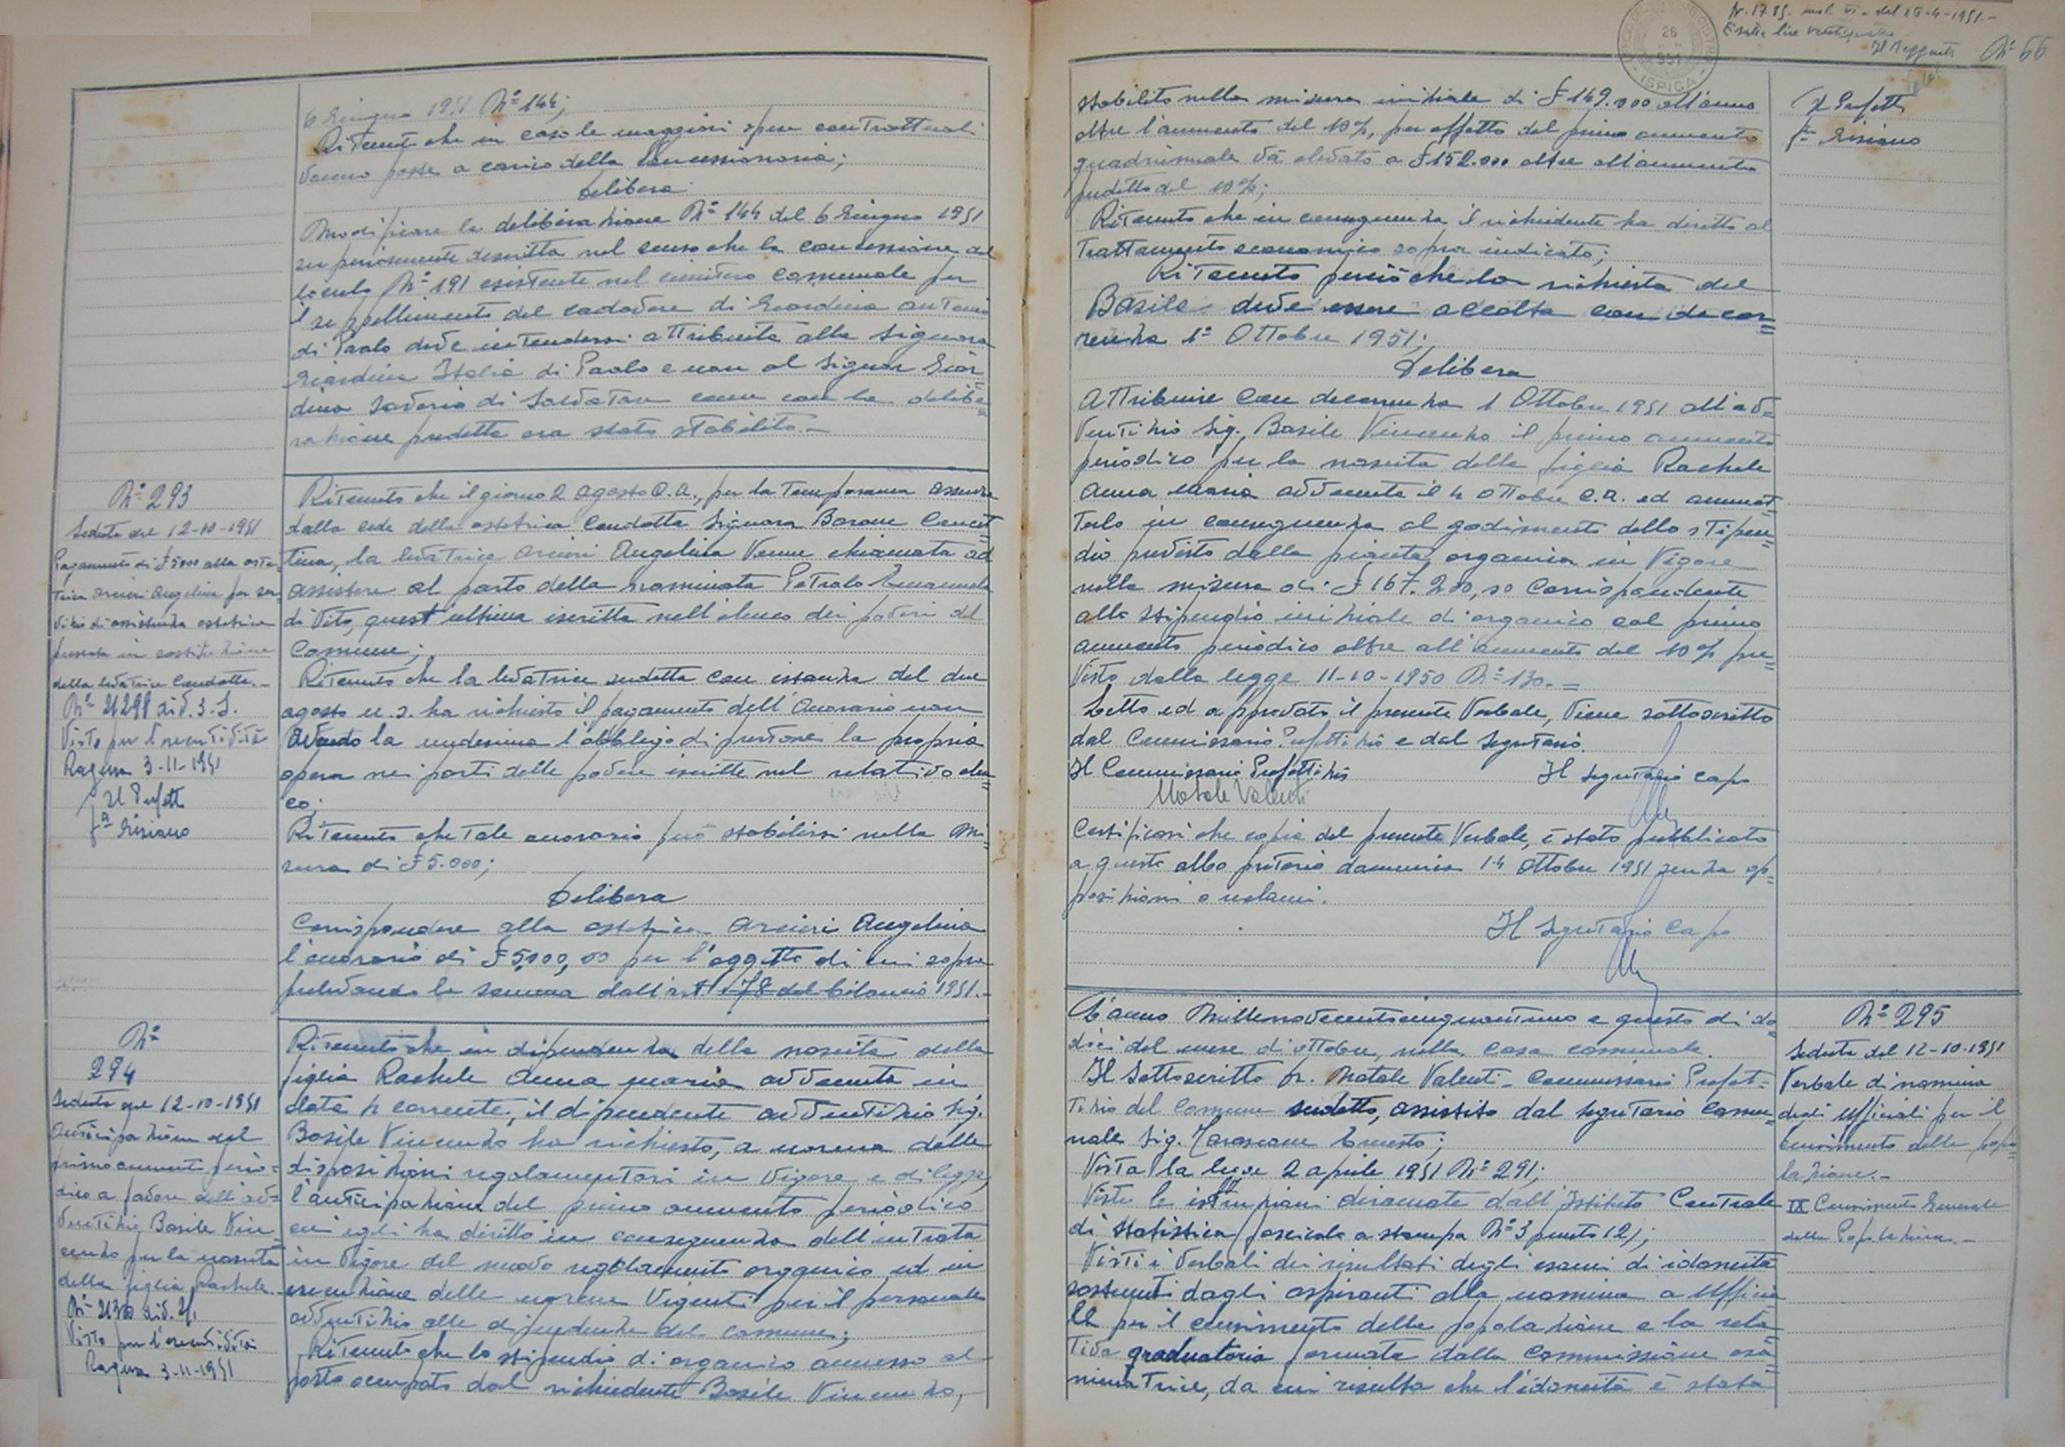 6 Giugno 1951 Nº 144;
Ritenuto che in caso le maggiori spese contrattuali
vanno poste a carico della concessionaria;
Delibera
Modificare la deliberazione Nº 144 del 6 Giugno 1951
superiormente descritta nel senso che la concessione del
loculo Nº 191 esistente nel cimitero comunale per
il seppellimento del cadavere di Giardina Antonio
di Paolo deve intendersi attribuita alla Signora
Giardina Italia di Paolo e non al Signor Giar
dina Saverio di Salvatore come con la delibe=
razione predetta era stato stabilito.-
Nº 293
Seduta del 12-10-1951
Pagamento di £ 5000 alla oste-
trica Arcieri Angelina per ser-
vizio di assistenza ostetrica
prestata in sostituzione
della levatrice Condotta.-
Nº 21298 div. 3. S.
Visto per l'esecutività
Ragusa 3-11-1951
Il Prefetto
fª Grisiano
Ritenuto che il giorno 2 agosto c.a., per la temporanea assenza
dalla sede della ostetrica Condotta Signora Barone Concet=
tina, la levatrice Arcieri Angelina venne chiamata ad
assistere al parto della nominata Petralo Emanuela
di Vito, quest'ultima iscritta nell'elenco dei poveri del
Comune;
Ritenuto che la levatrice sudetta con istanza del due
agosto u.s. ha richiesto il pagamento dell'onorario non
avendo la medesima l'obbligo di prestare la propria
opera nei parti delle povere iscritte nel relativo elen=
co;
Ritenuto che tale onorario può stabilirsi nella mi=
sura di £ 5.000;
Delibera
Corrispondere alla ostetrica Arcieri Angelina
l'onorario di £ 5000,00 per l'oggetto di cui sopra
prelevando la somma dall'art 78 del bilancio 1951.-
Nº
294
Seduta del 12-10-1951
Anticipazione del
primo aumento perio=
dico a favore dell'av=
ventizio Basile Vin=
cenzo per la nascita
della figlia Rachele.
Visto per l'esecutività
Ragusa 3-11-1951
Ritenuto che in dipendenza della nascita della
figlia Rachele Anna Maria avvenuta in
data 4 corrente, il dipendente avventizio Sig.
Basile Vincenzo ha richiesto, a norma delle
disposizioni regolamentari in vigore e di legge,
l'anticipazione del primo aumento periodico
cui egli ha diritto in conseguenza dell'entrata
in vigore del nuovo regolamento organico ed in
esecuzione delle norme vigenti per il personale
avventizio alle dipendenze del comune;
Ritenuto che lo stipendio di organico annesso al
posto occupato dal richiedente Basile Vincenzo,
26
951
ISPICA
Nº 66
stabilito nella misura iniziale di £ 149.000 all'anno
oltre l'aumento del 10%, per effetto del primo aumento
quadriennale va elevato a £ 152.000 oltre all'aumento
predetto del 10%;
Ritenuto che in conseguenza il richiedente ha diritto al
trattamento economico sopra indicato;
Ritenuto perciò che la richiesta del
Basile deve essere accolta con decor=
renza 1º Ottobre 1951;
Delibera
Attribuire con decorrenza 1 Ottobre 1951 all'av=
ventizio Sig. Basile Vincenzo il primo aumento
periodico per la nascita della figlia Rachele
Anna Maria avvenuta il 4 Ottobre c.a. ed ammet=
terlo in conseguenza al godimento dello stipen=
dio previsto dalla pianta organica in vigore
nella misura di £ 167.200,00 corrispondente
allo stipendio iniziale d'organico col primo
aumento periodico oltre all'aumento del 10% pre=
visto dalla legge 11-10-1950 Nº 130.=
Letto ed approvato il presente verbale, viene sottoscritto
dal Commissario Prefettizio e dal Segretario.
Il Commissario Prefettizio
Il Segretario Capo
Natale Valenti
Certificasi che copia del presente verbale, è stata pubblicata
a questo albo pretorio domenica 14 Ottobre 1951 senza op=
posizioni o reclami.
Il Segretario Capo
Il Prefetto
fº Grisiano
L'anno Millenovecentocinquantuno e questo dì do=
dici del mese di ottobre, nella casa comunale.
Il Sottoscritto Dr. Natale Valenti - Commissario Prefet=
tizio del Comune sudetto, assistito dal Segretario Comu=
nale Sig. Tarascone Ernesto;
Vista la legge 2 aprile 1951 Nº 291;
Viste le istruzioni diramate dall'Istituto Centrale
di Statistica (fascicolo a stampa Nº 3 punto 12);
Visti i verbali dei risultati degli esami di idoneità
sostenuti dagli aspiranti alla nomina a Ufficia
le per il censimento della popolazione e la rela=
tiva graduatoria formata dalla Commissione esa=
minatrice, da cui risulta che l'idoneità è stata
Nº 295
Seduta del 12-10-1951
Verbale di nomina
degli ufficiali per il
censimento della popo=
lazione.-
IX Censimento Generale
della Popolazione.-